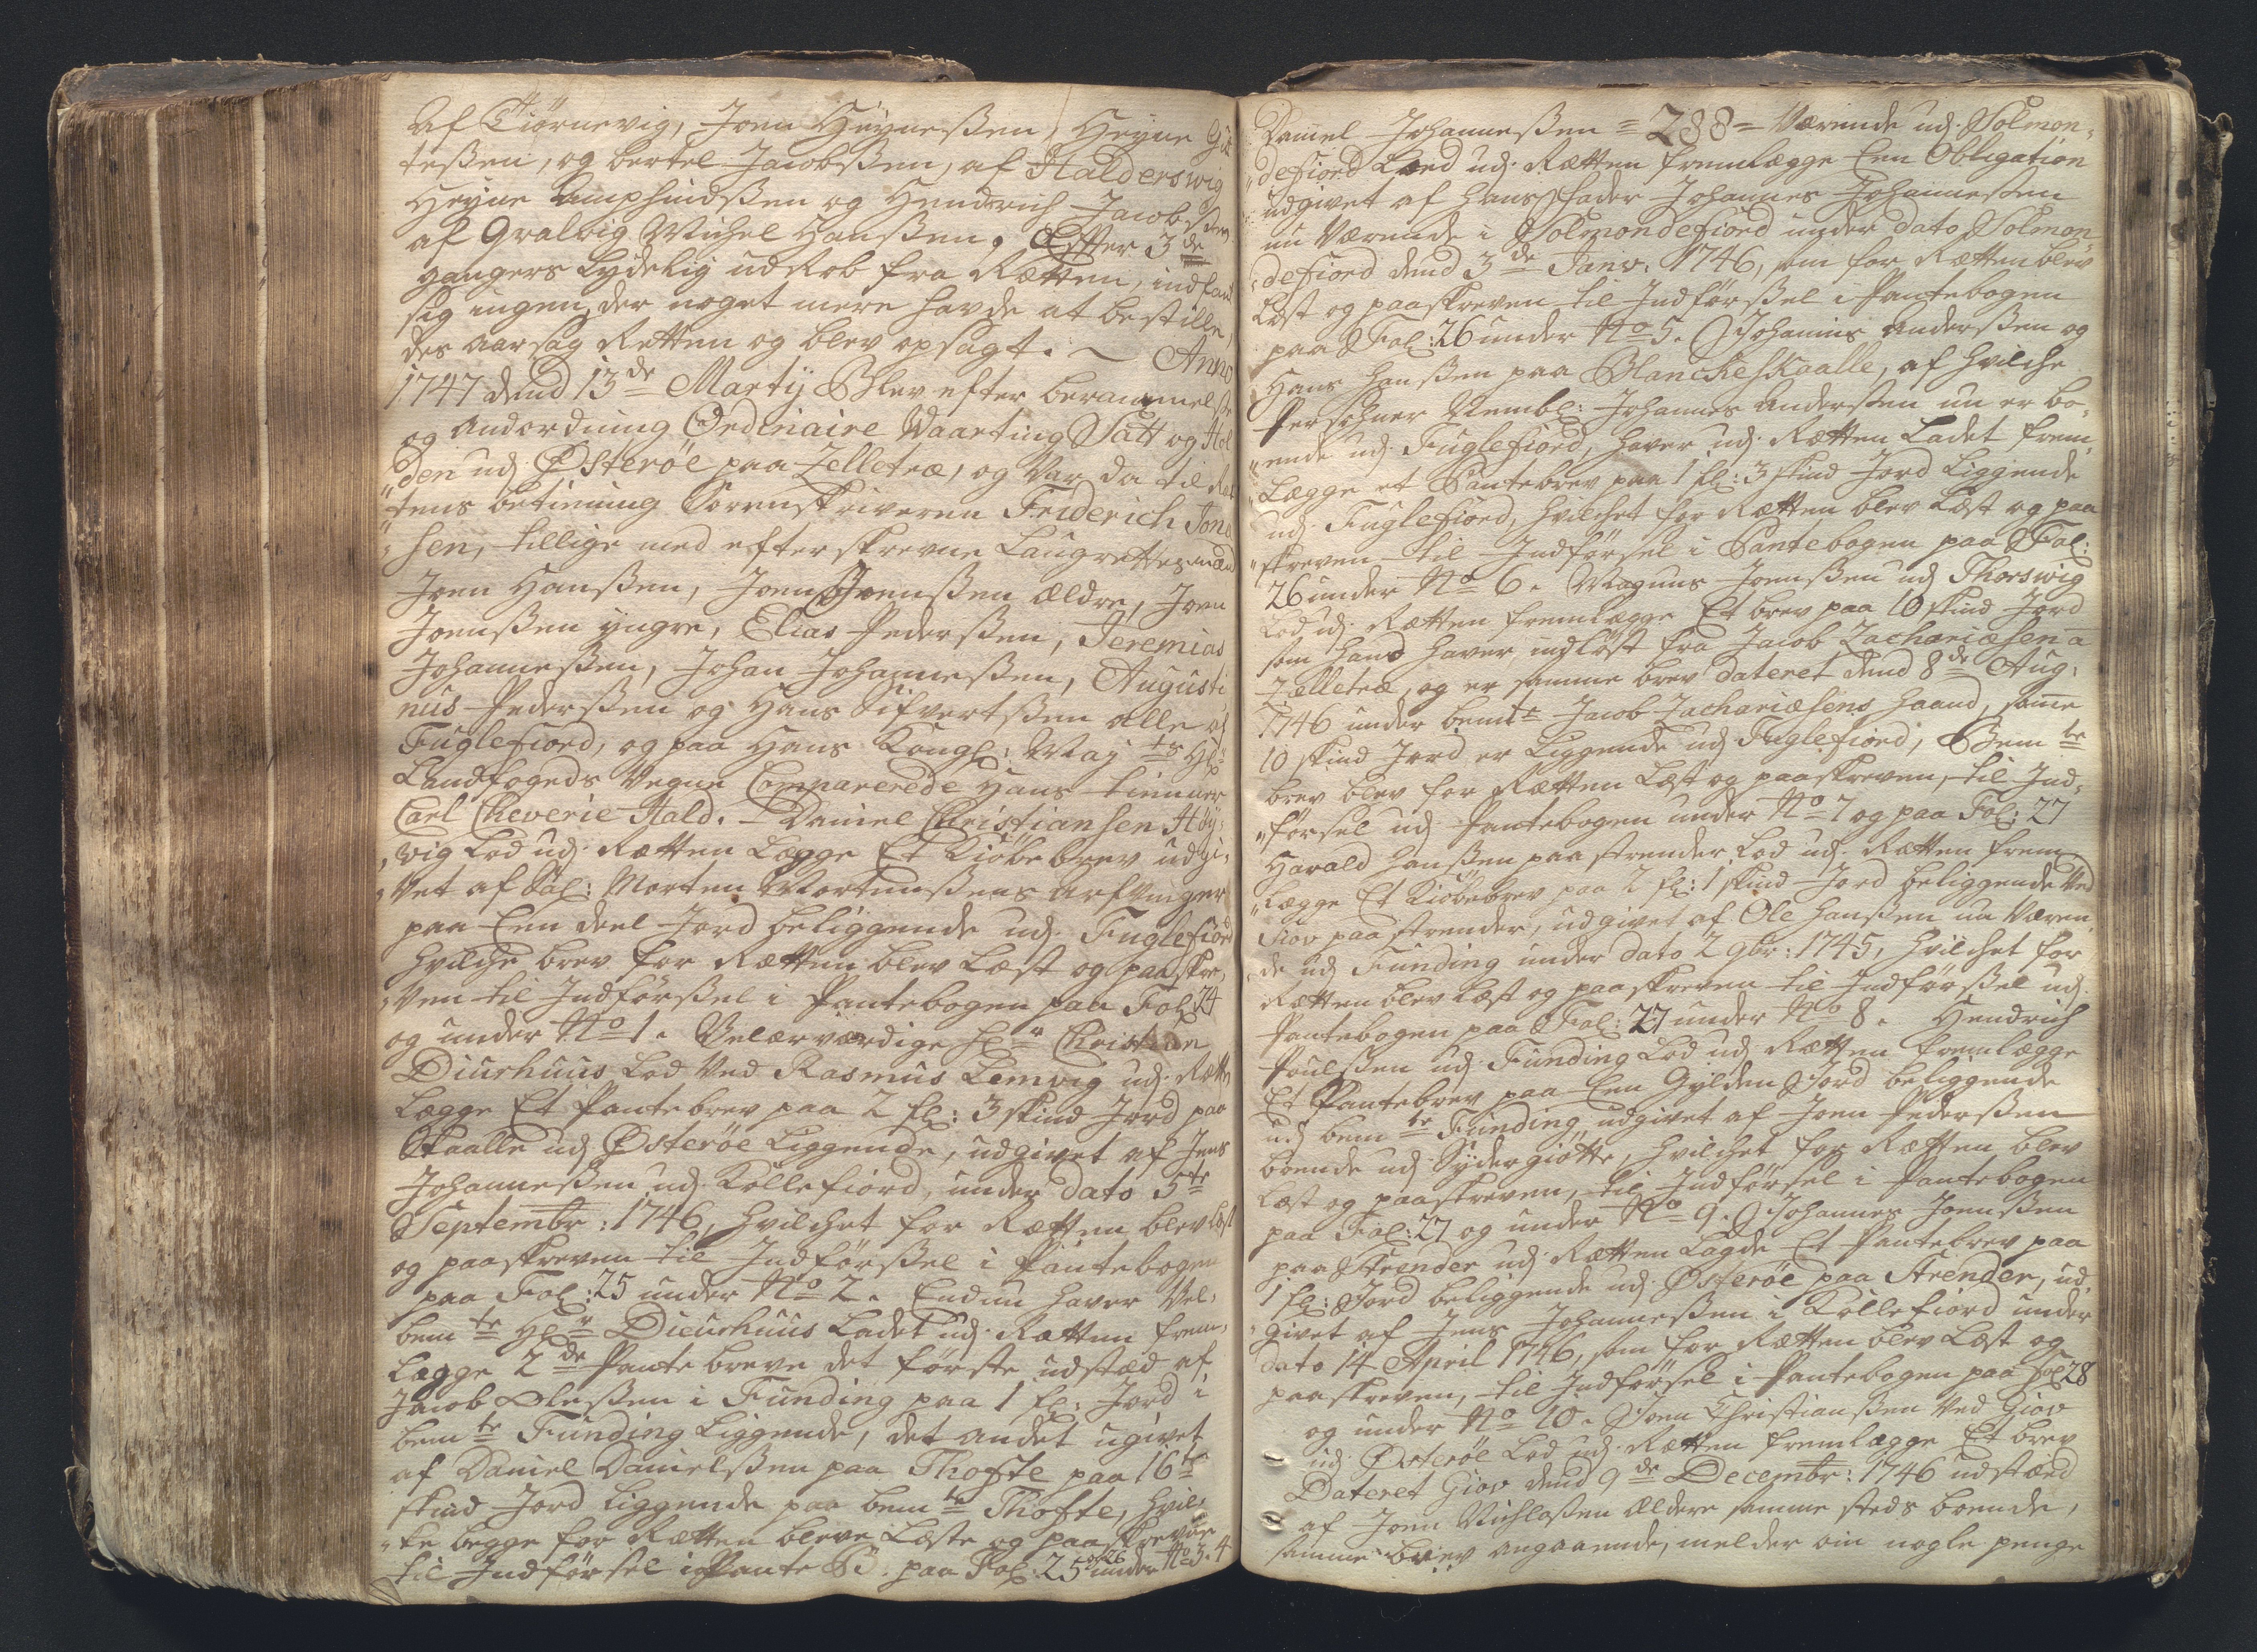 af Tiørnevig, Joen Heyneßen, Heyne
teßen, og bertel Jacobßen, af Halderswig
Heyne Amphindßen og Hendrich Jacobßen
af Qvalvig Michel Hanßen, Efter 3de
ganges Lydelig udRob fra Rætten, indfandt
sig ingen, der noget mere hafde at bestille,
des aarsag Retten og blev opsagt. ~ Anno
1747 dend 13de Martij Blev efter berammelse
og andordning Ordinaire Waarting Satt og Hol
den udj Østerøe paa Zelletræ, og Var da til Ret
tens betiening Sorenskriveren Friderich Jona
sen, tillige med efterskrevne Laugrettesmænd
Joen Hanßen, Joen Joenßen ældre, Joen
Joenßen yngre, Elias Pederßen, Jeremias
Johanneßen, Johan Johanneßen, Augusti
nus Pederßen og Hans Sifvertßen alle af
Fuglefiord, og paa Hans Kongl: Maj ts Hr
Landfogeds Vegne Comparerede Hans tienner
Carl Cheverie Hald. - Daniel Christiansen Høy:
vig Lod udj Rætten Lægge Et Kiøbebrev udgi:
vet af Sal: Morten Mortenßens arfvinger
paa Een deel Jord beliggende udj Fuglefiord
hvilche brev for Rætten blev Læst og paaskre
ven til Indførßel i Pantebogen paa Fol: 24
og under No 1. Velærværdige Hr Christian
Diurhuus Lod Ved Rasmus Lemvig udj Rætten
Lægge Et Pantebrev paa 2 fl: 3 skind Jord paa
Skaalle udj Østerøe Liggende, udgivet af Jens
Johanneßen udj Kollefiord, under dato 5te
Septembr: 1746, hvilchet for Rætten blev Læst
og paaskreven til Indførßel i Pantebogen
paa Fol: 25 under No 2. Endnu haver Vel:
bemte Hr Dieurhuus Ladet udj Rætten frem:
Lægge 2de Pantebreve det første udstæd af
Jacob Oleßen i Funding paa 1 fl: Jord i
bemte Funding Liggende, det andet ugivet
af Daniel Danielßen paa Thofte paa 16te
skind Jord Liggende paa bemte Thofte, hvil:
ke begge for Rætten bleve Læste og paaskrevne
til Indførsel i Pante B. paa Fol: 25 og 26 under No 3. 4
Daniel Johanneßen = 288 = Værende udj Solmon:
defiord Loed udj Rætten fremlægge Een Obligation
udgivet af Hans Fader Johannes Johanneßen
nu Værende i Solmondefiord under dato Solmon
defiord dend 3de Janv: 1746, som for Rætten blev
Læst og paaskreven til Indførßel i Pantebogen
paa Fol: 26 under No 5. Johannis Anderßen og
Hans Hanßen paa BlancheSkaalle, af hvilche
Persohner Nembl: Johannes Anderßen nu er bo:
ende udj Fuglefiord, haver udj Rætten Ladet frem
Lægge et Pantebrev paa 1 fl: 3 skind Jord Liggende
udj Fuglefiord, hvilchet for Rætten blev Læst og paa
skreven til Indførsel i Pantebogen paa Fol:
26 under No 6. Magnus Joenßen udj Thorswig
Lod udj Rætten fremlægge Et brev paa 10 skind Jord
som hand haver indløst fra Jacob Zachariæsen a
Zelletræ, og er samme brev dateret dend 8de Aug:
1746 under bemte Jacob Zachariæsens haand, samme
10 skind Jord er Liggende udj Fuglefiord, Bemte
brev blev for Rætten Læst og paaskreven, til Ind:
førsel udj Pantebogen under No 7 og paa Fol: 27
Harald Hanßen paa strender Lod udj Rætten frem
Lægge Et Kiøbebrev paa 2 fl: 1 skind Jord beliggende Ved
Giov paa strender, udgivet af Ole Hanßen nu Væren
de udj Funding under dato 2 9br: 1745, hvilchet for
Rætten blev Læst og paaskreven til Indførßel udj
Pantebogen paa Fol: 27 under No 8. Hendrich
Poulßen udj Funding Lod udj Rætten fremlægge
Et Pantebrev paa Een Gylden Jord beliggende
udj bemte Funding, udgivet af Joen Pederßen
boende udj Sydergiøtte, hvilchet for Rætten blev
Læst og paaskreven, til Indførsel i Pantebogen
paa Fol: 27 og under No 9. Johannes Joenßen
paa Strender udj Rætten Lagde Et Pantebrev paa
1 fl: Jord beliggende udj Østerøe paa Strender, ud
givet af Jens Johanneßen i Kollefiord under
dato 14 April 1746, som for Rætten blev Læst og
paaskreven, til Indførsel i Pantebogen paa Fol 28
og under No 10. Joen Christianßen Ved Giov
udj Østerøe Lod udj Rætten fremlægge Et brev
Dateret Giov dend 9de Decembr: 1746 udstæd
af Joen Nichlaßen ældere samme steds boende,
samme brev angaaende, melder om nogle penge